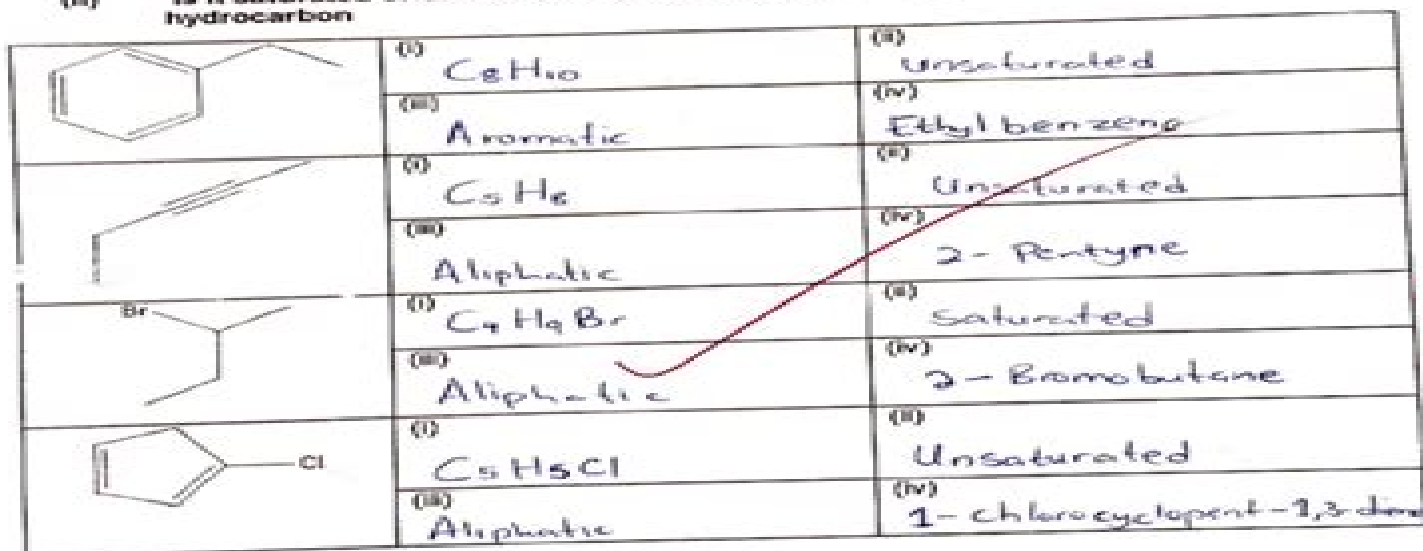 (ii)
hydrocarbon
(i) C8H10
(ii) Unsaturated
(iii) Aromatic
(iv) Ethyl benzene
(i) C5H8
(ii) Unsaturated
(iii) Aliphatic
(iv) 2 - Pentyne
Br
(i) C4H9Br
(ii) Saturated
(iii) Aliphatic
(iv) 2 - Bromobutane
Cl
(i) C5H5Cl
(ii) Unsaturated
(iii) Aliphatic
(iv) 1 - chlorocyclopent - 1,3-diene